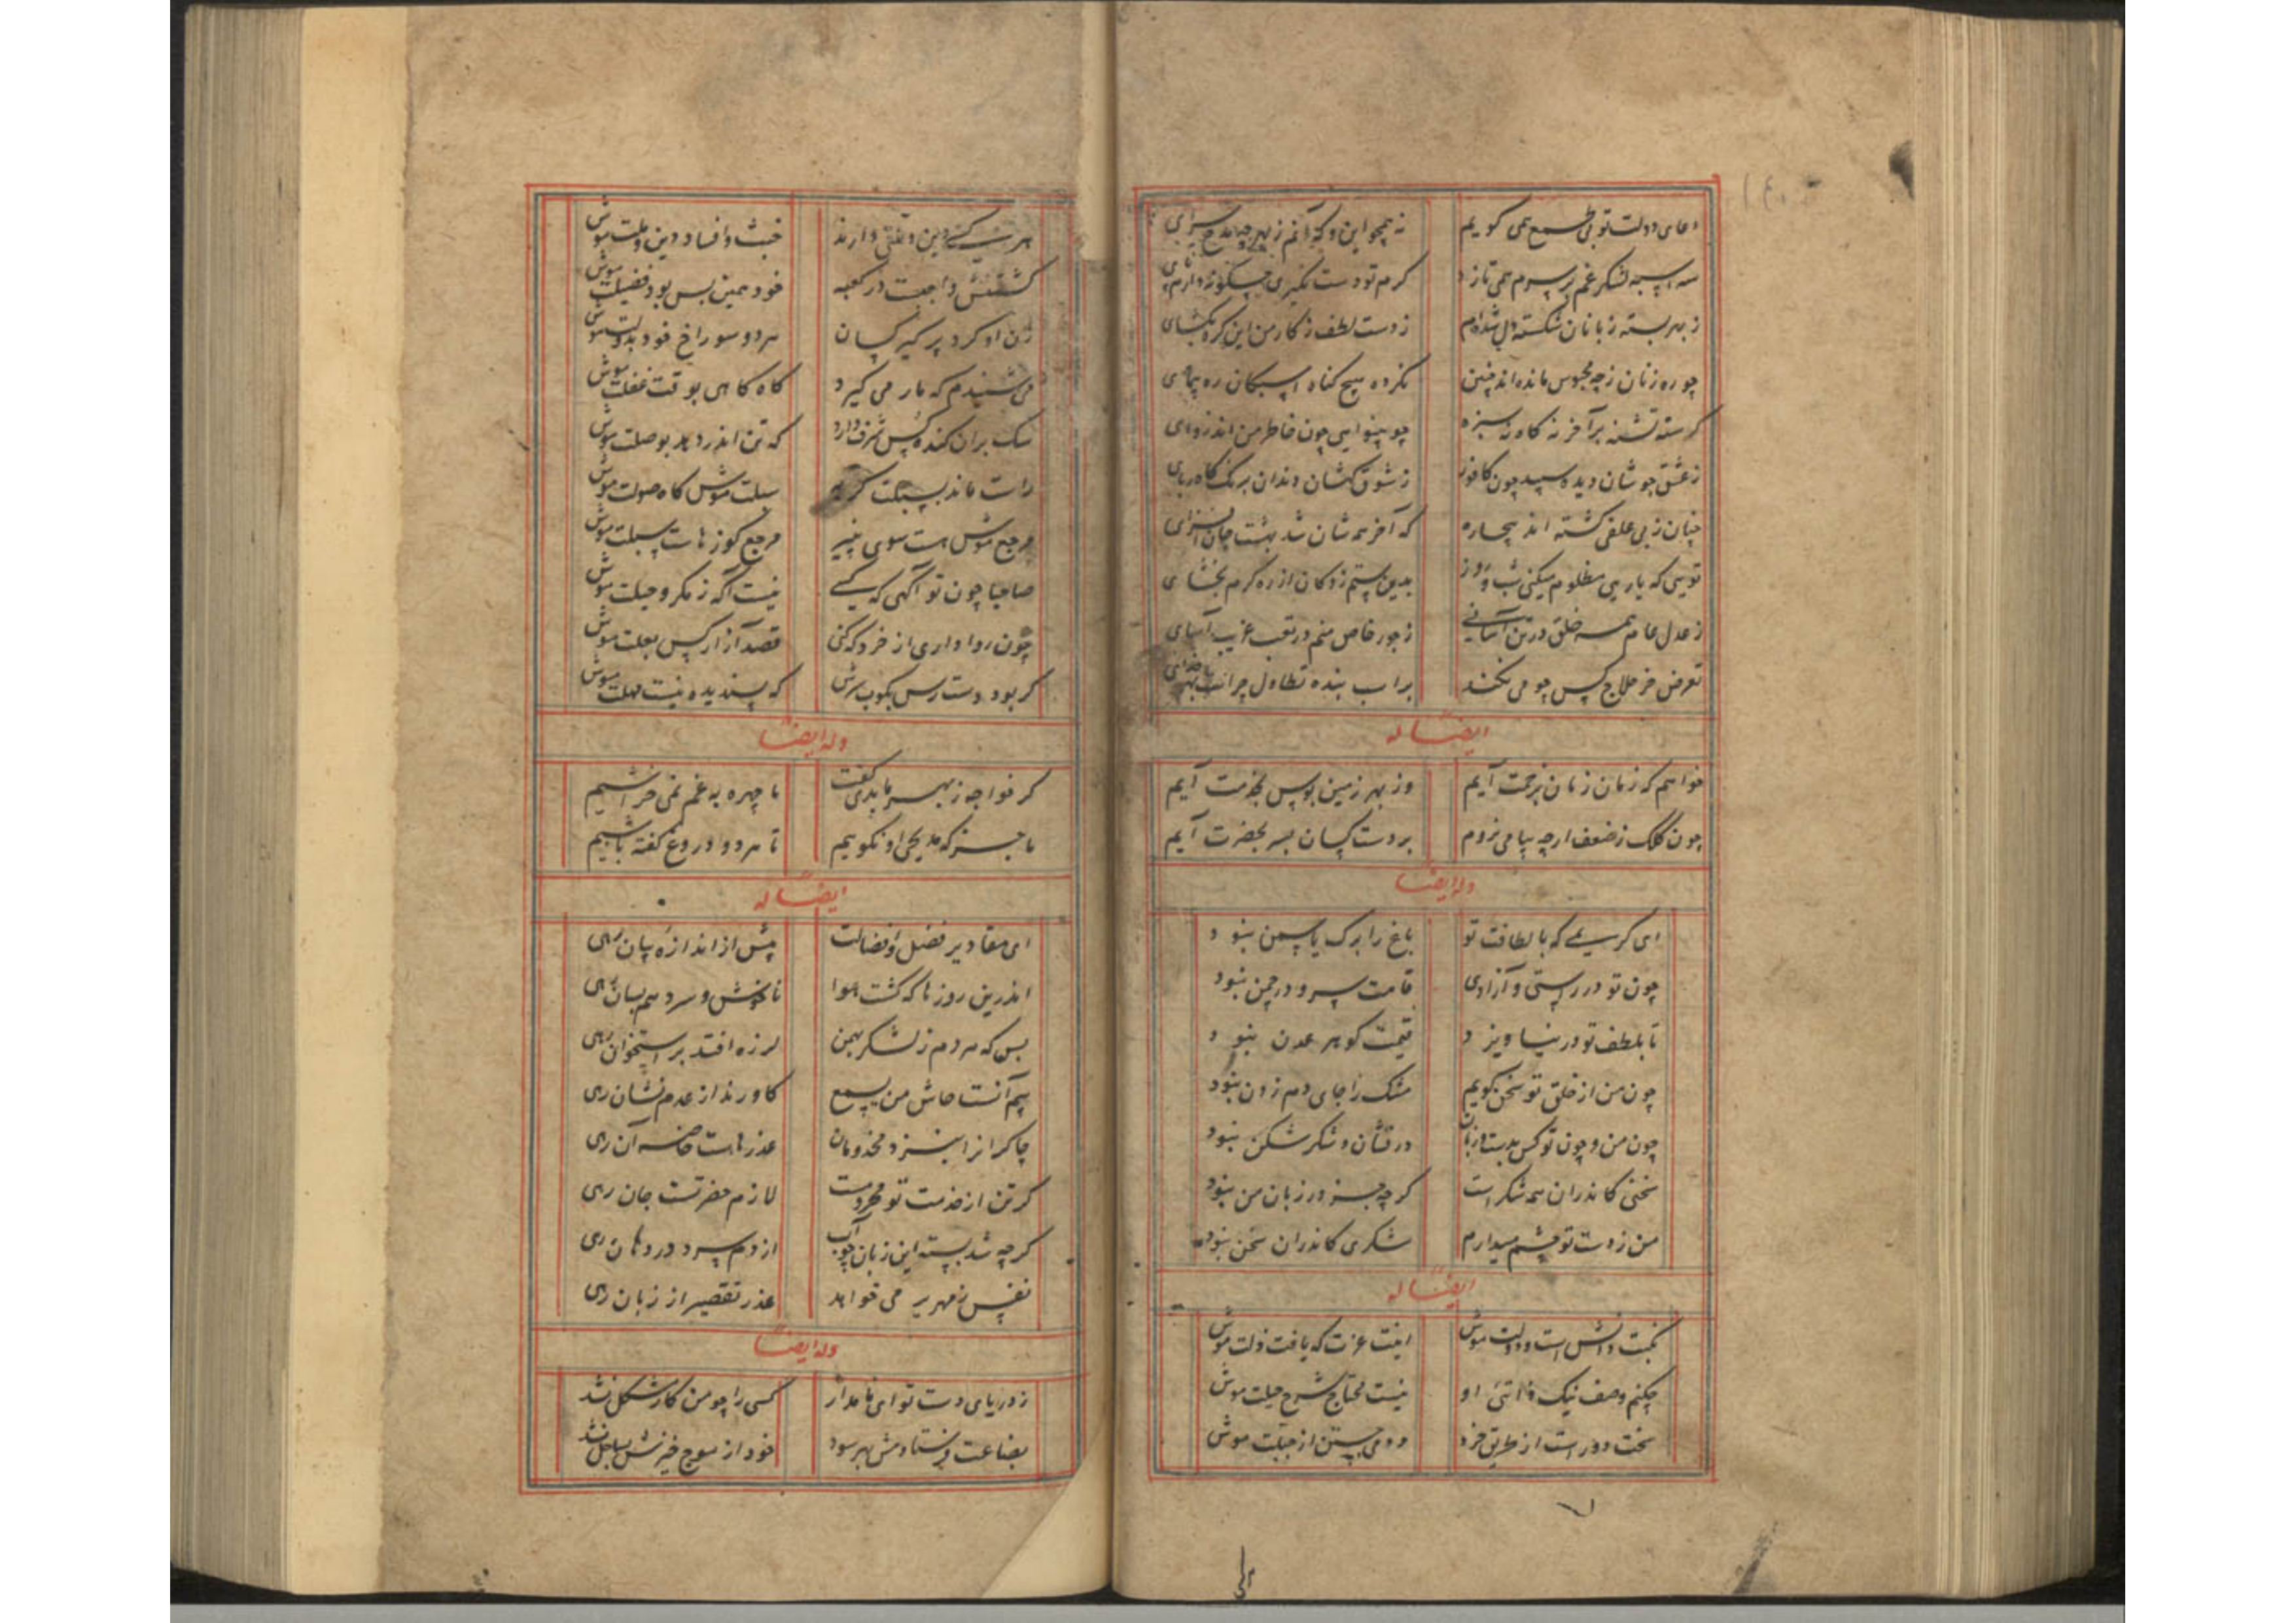 دعای دولت تو بی طمع همی گویم نه همچو این و که آنم ز بهر مدح سرای
سه اسبه لشکر غم بر سرم همی تازد گرم تو دست نگیری چگونه دارم پای
ز بهر بسته زبانان شکسته دل شده‌ام ز دست لطف ز کار من این گره بگشای
چو ره زنان ز چه محبوس مانده‌اند چنین نکرده هیچ گناه اسبکان ره پیمای
گرسنه تشنه بر آخر نه کاه نه سبزه چو بینوایی چون خاطر من اندر وای
ز عشق جوشان دیده سپید چون کافور ز شوق کهشان دندان برنگ کاه ربای
چنان ز بی علفی گشته‌اند بیچاره که آخر همه شان شد بهشت جان افزای
تویی که یاری مظلوم میکنی شب و روز بدین ستم زدگان از ره کرم بخشای
ز عدل عام همه خلق در تن آسانی ز جور خاص منم در تعب غریب آسای
تعرض خر حلاج کس چو می نکند بر اسب بنده تطاول چراست بهر خدای
ایضا له
خواهم که زمان زمان برحمت آیم وز بهر زمین بوس بخدمت آیم
چون کلک ز ضعف ارچه بپا می نروم بر دست کسان بسر بحضرت آیم
وله ایضا
ای کریمی که با لطافت تو باغ را برگ یاسمن نبود
چون تو در راستی و آزادی قامت سرو در چمن نبود
تا بلطف تو در نیاویزد قیمت گوهر عدن نبود
چون من از خلق تو سخن گویم مشک را جای دم زدن نبود
چون من و چون تو کس بدست و زبان درفشان و شکر شکن نبود
سخنی کاندران همه شکر است گرچه جز در زبان من نبود
من ز دست تو چشم میدارم شکری کاندران سخن نبود
ایضا له
نکبت دانش است دولت موش اینت عزت که یافت ذلت موش
چکنم وصف نیک ذاتی او نیست محتاج شرح حیلت موش
سخت دورست از طریق خرد دومی جستن از جبلت موش
هر کسی دین و ملتی دارند خبث و افساد دین و ملت موش
کشتنش واجبت در کعبه خود همین بس بود فضیلت موش
زن او کرد پر کسان هر دو سوراخ خود بدولت موش
می شنیدم که مار می گیرد گاه گاهی بوقت غفلت موش
سگ بران گنده کس شرف دارد که تن اندر دهد بوصلت موش
راست ماند بسبلت گربه سبلت موش گاه صولت موش
مرجع موش هست سوی پنیر مرجع گوزهاست سبلت موش
صاحبا چون تو آگهی که کسی نیست آگه ز مکر و حیلت موش
چون روا داری از خرد که کنی قصد آزار کس بعلت موش
گر بود دست رس بکوب سرش که پسندیده نیست مهلت موش
وله ایضا
گر خواجه ز بهر ما بدی گفت ما چهره به غم نمی خراشیم
ما جز که مدیحی او نگوییم تا هر دو دروغ گفته باشیم
ایضا له
ای مقادیر فضل و افضالت بیش از اندازه بیان رهی
اندرین روزها که گشت هوا ناخوش و سرد همبسان رهی
بس که هر دم ز لشکر بهمن لرزه افتد بر استخوان رهی
بیم آنست حاش من یسمع کاورند از عدم نشان رهی
چاکران را بنزد مخدومان عذرهاست خاصه آن رهی
گر تن از خدمت تو محرومست لازم حضرتست جان رهی
گرچه شد بسته این زبان چو آب از دم سرد در دهان رهی
نفس زمهریر می خواهد عذر تقصیر از زبان رهی
وله ایضا
ز دریای دست تو ای نامدار کسی را چو من کار مشکل نشد
بضاعت فرستادمش بهر سود خود از موج خیزش بساحل نشد